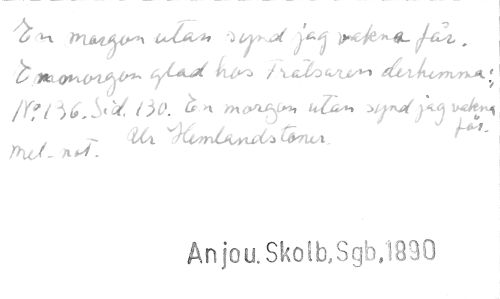 En morgon utan synd jag vakna får.
En morgon glad hos Frälsaren derhemma;
No. 136. Sid. 130. En morgon utan synd jag vakna får.
mel. not. Ur Hemlandstoner.
Anjou. Skolb, Sgb, 1890